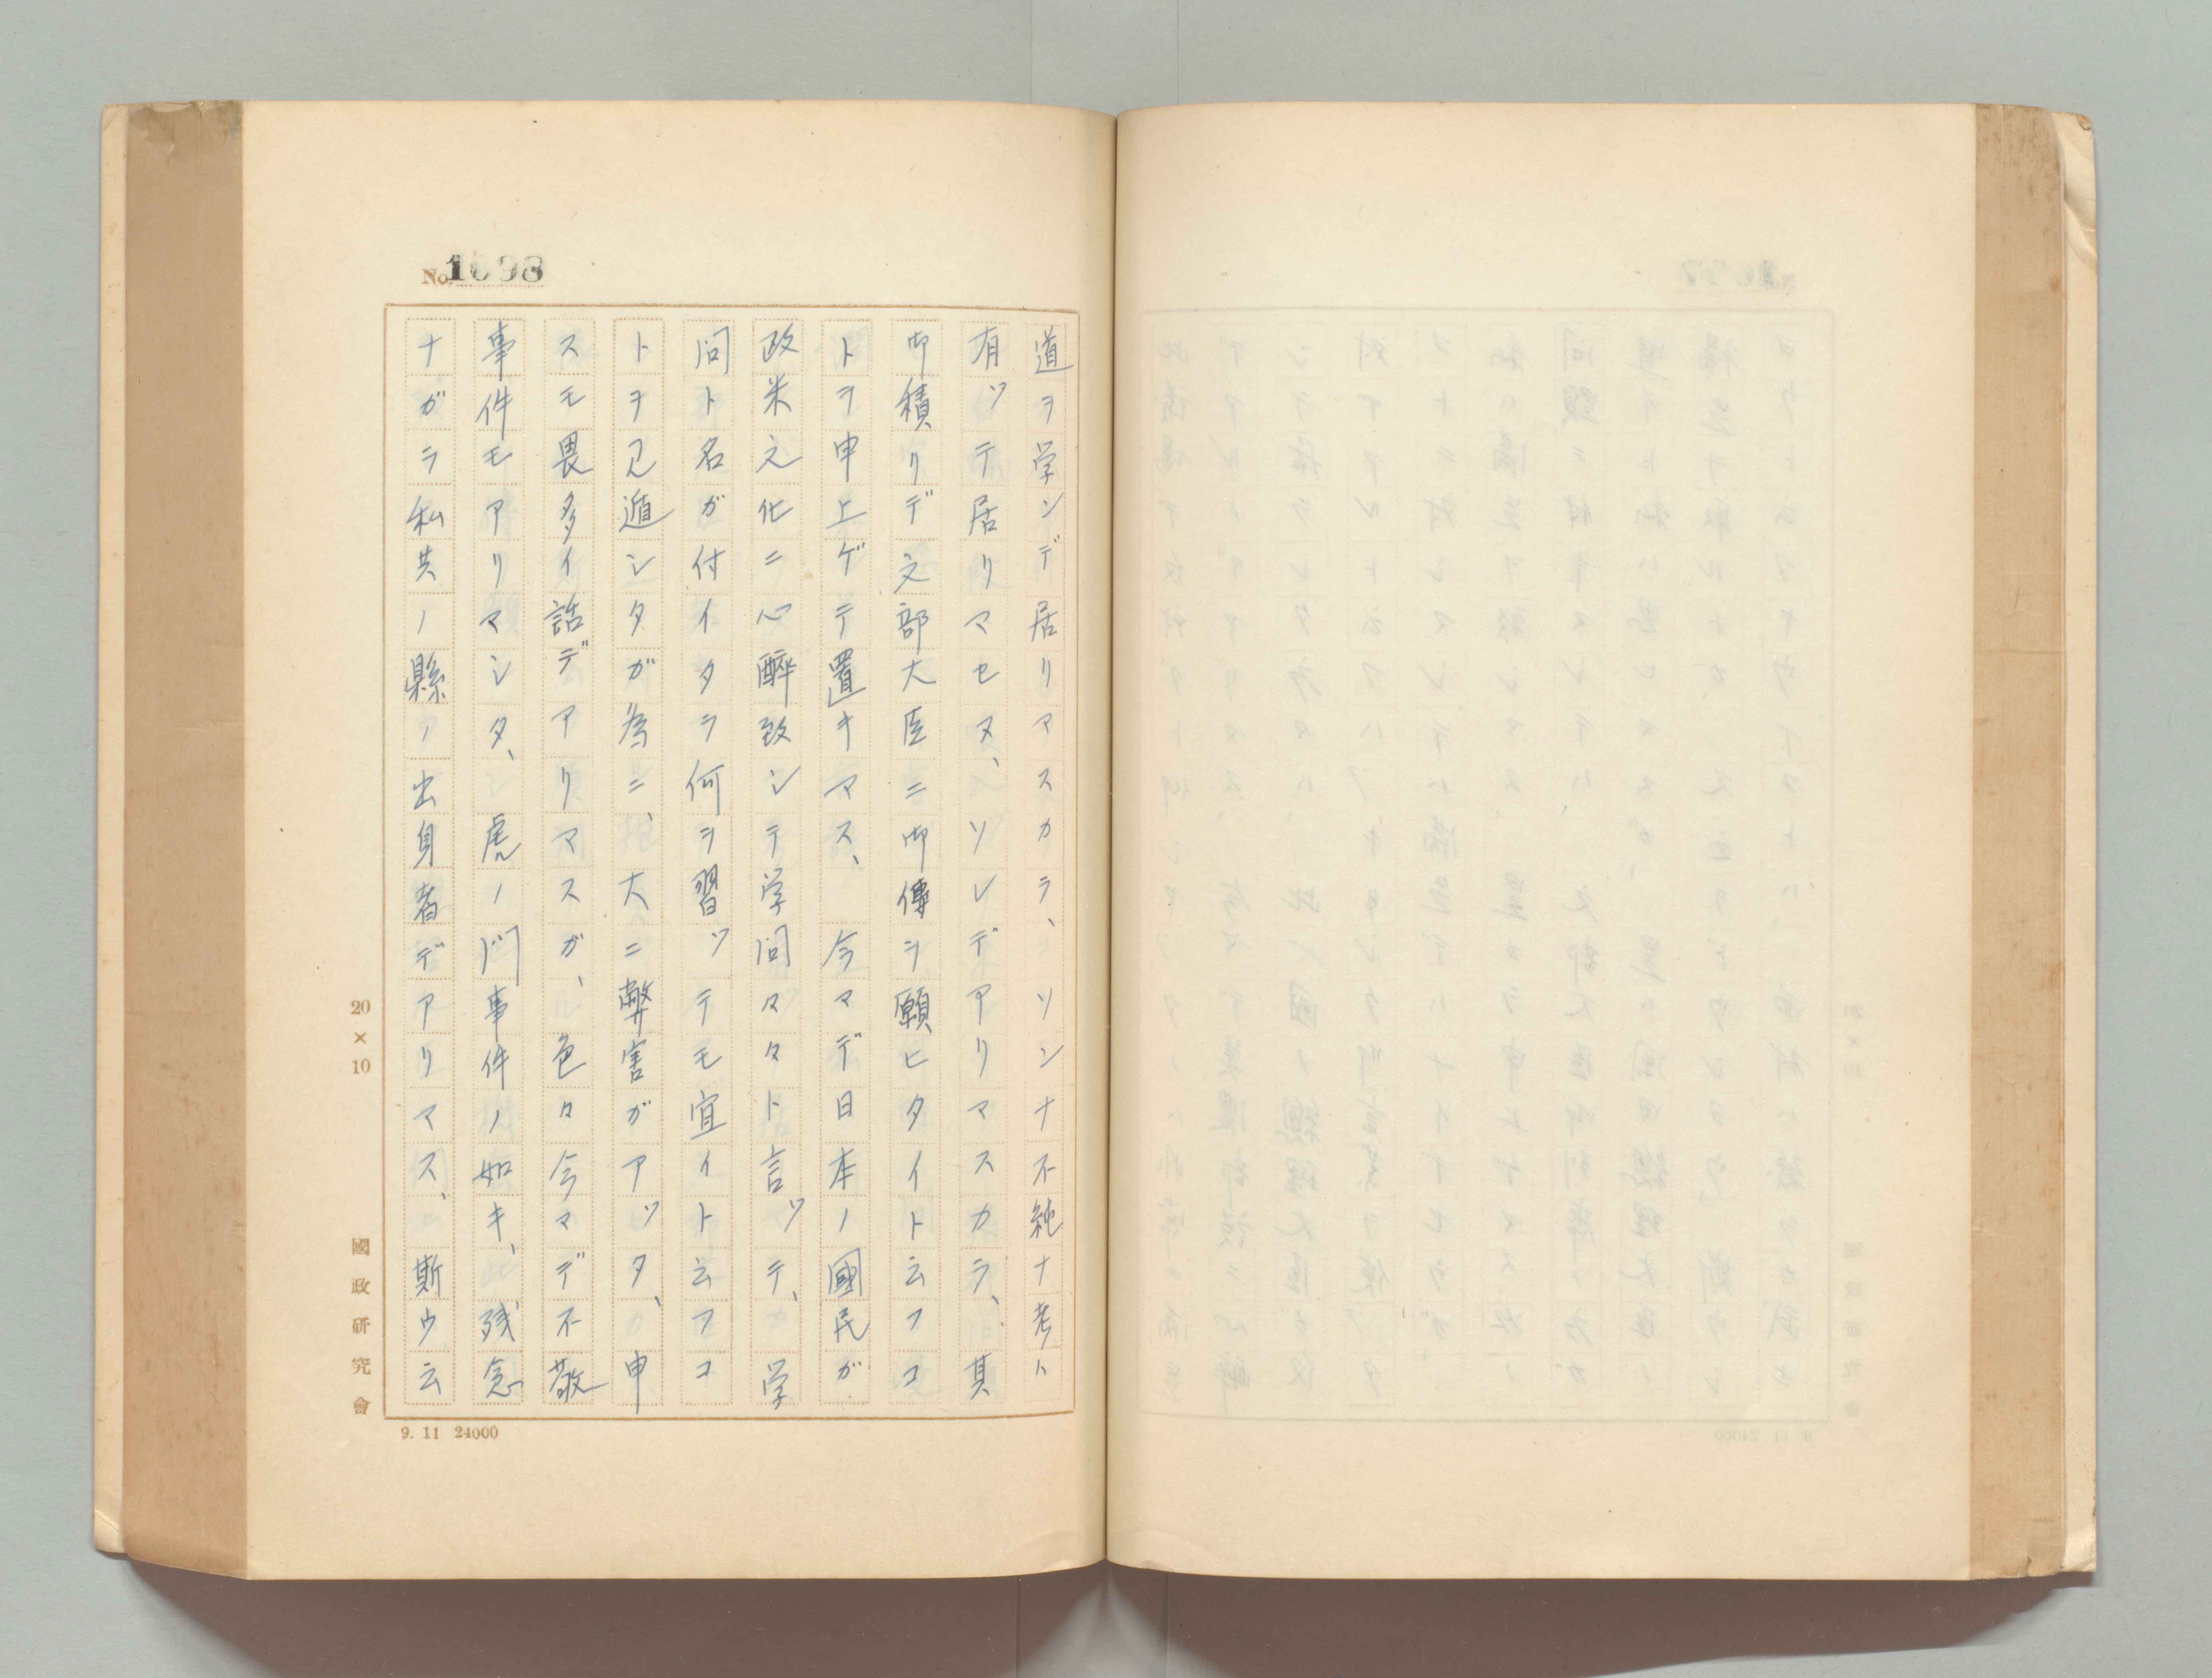 No. 1098
道ヲ学ンデ居リマスカラ、ソンナ不純ナ考ハ
有ッテ居リマセヌ、ソレデアリマスカラ、其
御積リデ文部大臣ニ御傳ヲ願ヒタイト云フコ
トヲ申上ゲテ置キマス、今マデ日本ノ國民ガ
政米文化ニ心醉致シテ学問々々ト言ッテ、学
問ト名ガ付イタラ何ヲ習ッテモ宜イト云フコ
トヲ見遁シタガ為ニ、大ニ弊害ガアッタ、申
スモ畏多イ話デアリマスガ、色々今マデ不敬
事件モアリマシタ、虎ノ門事件ノ如キ、残念
ナガラ私共ノ縣ノ出身者デアリマス、斯ウ云
20×10
國政研究會
9. 11 24000